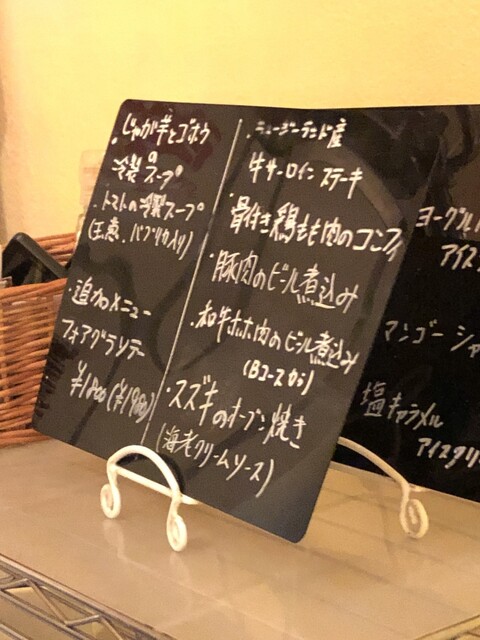 ・じゃが芋とゴボウ
冷製スープ
・トマトの冷製スープ
(玉葱、パプリカ入り)
・追加メニュー
フォアグラソテー
¥1800(¥1980)
・ニュージーランド産
牛サーロインステーキ
・骨付き鶏もも肉のコンフィ
・豚肉のビール煮込み
・和牛ホホ肉のビール煮込み
(Bコースから)
・スズキのオーブン焼き
(海老クリームソース)
ヨーグル
アイス
マンゴーシャ
塩キャラメル
アイスクリ